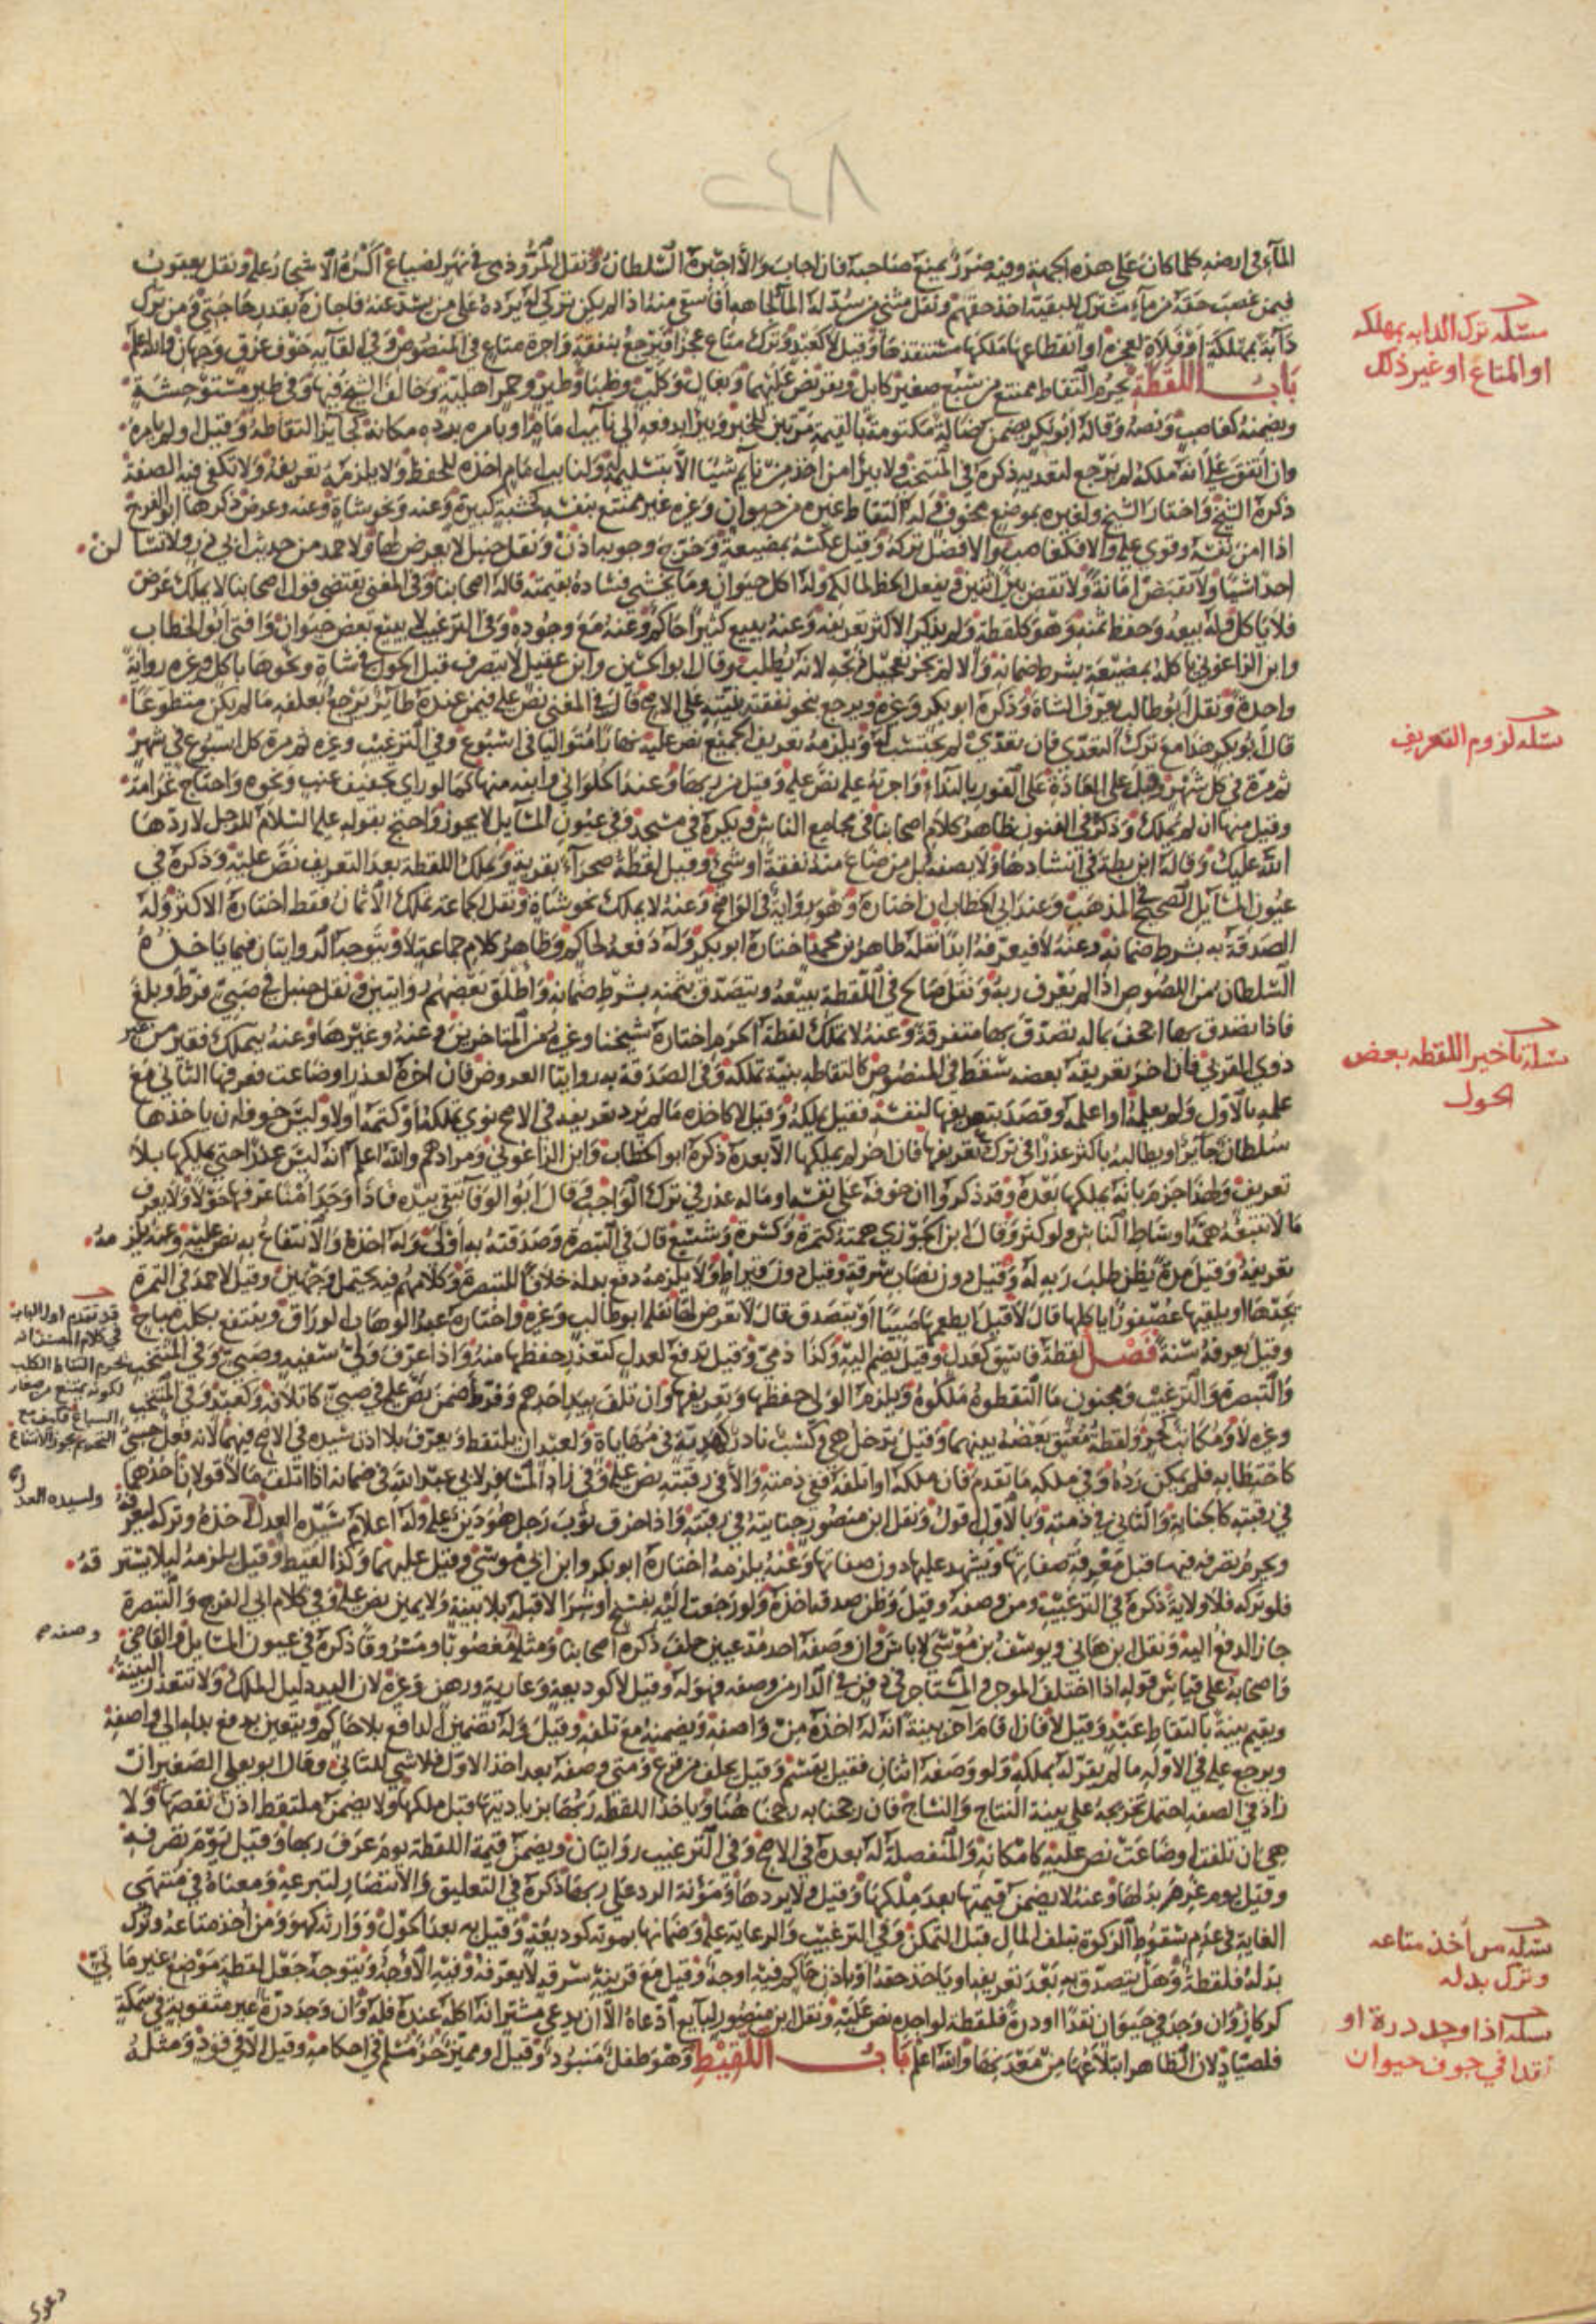 ٢٤٨
الماء في ارضه كلما كان على هذه الجهة وفيه ضرر يمنع صاحبه فان اجاب والا اجبره السلطان ونقل المروذي في نهر لضياع اكره الاشجار عليه ونقل يعقوب
فيمن غصب حقه من ماء مشترك للبقية اخذ حقهم ونقل مثنى من سد له الماء لجاهه أفأسقي منه اذا لم يكن تركي له يرده على من يسد عنه فاجازه بقدر حاجتي ومن ترك
دابة بمهلكة او فلاة لعجزه او انقطاعها ملكها مستنقذها وقيل لا كعبد وترك متاع عجزا فيرجع بنفقة واجرة متاع في المنصوص وفي القائه خوف غرق وجهان والله اعلم
باب اللقطة يحرم التقاط ممتنع من سبع صغير كابل وبقر نص عليهما وبغال وكلب وظباء وطير وحمر اهلية وخالف الشيخ فيها وفي طير مستوحشة
ويضمنه كغاصب ونصه وقاله ابو بكر يضمن ضالة مكتومة بالقيمة مرتين للخبر ويبرأ بدفعه الى نائب امام او بامره برده مكانه كجائز التقاطه وقيل ولم يامره
وان انفق على انه ملكه لم يرجع لتعديه ذكره في المنتخب ولا يبرأ من اخذ من نائم شيئا الا بتسليمه له ولنائب امام اخذه للحفظ ولا يلزمه تعريفه ولا تكفي فيه الصفة
ذكره الشيخ واختار الشيخ ولغيره بموضع مخوف وله التقاط غيره من حيوان وغيره غير ممتنع بنفسه كخشبة كبيرة وعنه ونحو شاة وعنه وعرض ذكرها ابو الفرج
اذا امن نفسه وقوي عليه والا فكغاصب والافضل تركه وقيل عكسه بمضيعة وخرج وجوبه اذن ونقل حنبل لا يعرض لها ولاحمد من حديث ابي ذر ولا تسألن
احدا شيئا ولا تقبض امانة ولا تقض بين اثنين ويفعل الحظ لمالكه وله اكل حيوان وما يخشى فساده بقيمته قاله اصحابنا وفي المغني يقتضي قول اصحابنا لا يملك عرض
فلا ياكل وله بيعه وحفظ ثمنه وهو كلقطة ولم يذكر الاكثر تعريفه وعنه يبيع كثيرا حاكم وعنه مع وجوده وفي الترغيب لا يبيع بعض حيوان وافتى ابو الخطاب
وابن الزاغوني ياكله بمضيعة بشرط ضمانه والا لم يجز تعجيل ذبحه لانه يطلب وقال ابو الحسين وابن عقيل لا يتصرف قبل الحول في شاة ونحوها باكل وغيره رواية
واحدة ونقل ابو طالب يعرف الشاة وذكره ابو بكر وغيره ويرجع بنحو نفقته بنيته على الاصح قال في المغني نص عليه فيمن عنده طائر يرجع بعلفه ما لم يكن متطوعا
قال ابو بكر هذا مع ترك التعدي فان تعدى لم يحتسب له ويلزمه تعريف الجميع نص عليه نهارا متواليا في اسبوع وفي الترغيب وغيره ثم مرة كل اسبوع في شهر
ثم مرة في كل شهر وقيل على العادة على الفور بالنداء واجرته عليه نص عليه وقيل من ربها وعند الحلواني وابنه منها كما لو راى تجفيف عنب ونحوه واحتاج غرامة
وقيل منها ان لم يملك وذكره في الفنون ظاهر كلام اصحابنا في مجامع الناس ويكره في مسجد وفي عيون المسائل لا يجوز واحتج بقوله عليه السلام للرجل لا ردها
الله عليك وقاله ابن بطة في انشادها ولا يصفه بل من ضاع منه نفقة او شيء وقيل لقطة صحراء بقرية وتملك اللقطة بعد التعريف نص عليه وذكره في
عيون المسائل الصحيح في المذهب وعند ابي الخطاب ان اختاره وهو رواية في الواضح وعنه لا يملك نحو شاة ونقل الجماعة تملك الاثمان فقط اختاره الاكثر وله
الصدقة به بشرط ضمانه وعنه لا فيعرفه ابدا نقله طاهر بن محمد اختاره ابو بكر وله دفعه لحاكم وظاهر كلام جماعة لا ويتوجه الروايتان فيما ياخذه
السلطان من اللصوص اذا لم يعرف ربه ونقل صالح في اللقطة يبيعه ويتصدق بثمنه بشرط ضمانه واطلق بعضهم روايتين ونقل حنبل في صبي فرط وبلغ
فاذا تصدق بها اجحف بماله تصدق بها متفرقة وعنه لا تملك لقطة الحرم اختاره شيخنا وغيره من المتاخرين وعنه وغيرها وعنه يتملك فقير من غير
ذوي القربى فان اخر تعريفه بعضه سقط في المنصوص كالتقاطه بنية تملكه وفي الصدقة به روايتا العروض فان اخره لعذر او ضاعت فعرفها الثاني مع
علمه بالاول ولم يعلمه او اعلمه وقصد بتعريفها لنفسه فقيل يملكه وقيل لا كاخذه ما لم يرد تعريفه في الاصح نوى تملكه او كتمه او لا وليس خوفه ان ياخذها
سلطان جائر او يطالبه باكثر عذرا في ترك تعريفها فان اخر لم يملكها الا بعده ذكره ابو الخطاب وابن الزاغوني ومرادهم والله اعلم انه ليس عذرا حتى يملكها بلا
تعريف ولهذا جزم بانه يملكها بعده وقد ذكروا ان خوفه على نفسه او ماله عذر في ترك الواجب وقال ابو الوفا تبقى بيده فاذا وجد امنا عرفها حولا ولا يعرف
ما لا تتبعه همة اوساط الناس ولو كثر وقال ابن الجوزي همته كتمرة وكسرة وشسع قال في التبصرة وصدقته به اولى وله اخذه والانتفاع به نص عليه وعنه يلزمه
تعريفه وقيل مدة يظن طلب ربه له وقيل دون نصاب سرقة وقيل دون قيراط ولا يلزمه دفع بدله خلافا للتبصرة وكلامهم فيه يحتمل وجهين وقيل لاحمد في التمرة
يجدها او يلقيها عصفور اياكلها قال لا قيل ايطعمها صبيا او يتصدق قال لا يعرض لها نقلها ابو طالب وغيره واختاره عبد الوهاب الوراق وينتفع بكلب مباح
وقيل يعرفه سنة فصل لقطة فاسق كعدل وقيل يضم اليه وكذا ذمي وقيل تدفع لعدل كتعذر حفظها منه واذا عرف ولي سفيه وصبي وفي المنتخب
والتبصرة والترغيب ومجنون ما التقطوه ملكوه ويلزم الولي حفظها وتعريفها وان تلف بيد احدهم وفرط ضمن نص عليه في صبي كاتلافه وكعبد وفي المنتخب
وغيره لا ومكاتب كحر ولقطة معتق بعضه بينهما وقيل تدخل هي وكسب نادر كهدية في مهاياة ولعبد ان يلتقط ويعرف بلا اذن سيده في الاصح فيهما لانه فعل حسي
كاحتطابه فلم يمكن رده وفي ملكه ما تقدم فان ملكه او اتلفه ففي ذمته والا في رقبته نص عليه وفي زاد المسافر لابي عبد الله في ضمانه اذا اتلف مالا قولان احدهما
في رقبته كالجناية والثاني في ذمته وبالاول اقول ونقل ابن منصور جنايته في رقبته واذا خرق ثوب رجل هو دين عليه وله اعلام سيده العدل اخذه وتركه ليعرفه
ويحرم تصرفه فيها قبل معرفة صفاتها ويشهد عليها دون صفاتها وعنه يلزمه اختاره ابو بكر وابن ابي موسى وقيل عليهما وكذا اللقيط وقيل يلزمه لئلا يسترقه
فلو تركه فلا ولاية ذكره في الترغيب ومن وصفه وقيل وظن صدقه اخذه ولو رجعت اليه بفسخ او شرا لا قبله بلا بينة ولا يمين نص عليه وفي كلام ابي الفرج والتبصرة
جاز الدفع اليه ونقل ابن هاني ويوسف بن موسى لا باس وان وصفه احد مدعيين حلف ذكره اصحابنا ومثله مغصوبا ومسروقا ذكره في عيون المسائل والقاضي
واصحابه على قياس قوله اذا اختلف الموجر والمستاجر في دفن في الدار من وصفه فهو له وقيل لا كوديعة وعارية ورهن وغيره لان اليد دليل الملك ولا تتعذر البينة
ويقيم بينة بالتقاط عبد وقيل لا فان اقام اخر بينة انه له اخذه من واصفه ويضمنه مع تلفه وقيل وله تضمين الدافع بلا حاكم ويتعين بدفع بدله الى واصفه
ويرجع عليه في الاولة ما لم يقر له بملكه ولو وصفه اثنان فقيل يقسم وقيل يحلف من قرع ومتى وصفه بعد اخذ الاول فلا شيء للثاني وقال ابو يعلى الصغير ان
زاد في الصفة احتمل تخريجه على بينة النتاج والنساج فان رجحنا به رجحنا هنا وياخذ اللقطة ربها بزيادتها قبل ملكها ولا يضمن ملتقط اذن نقصها ولا
هي ان تلفت او ضاعت نص عليه كامكانه والمنفصلة له بعده في الاصح وفي الترغيب روايتان ويضمن قيمة اللقطة يوم عرف ربها وقيل يوم تصرفه
وقيل يوم غرم بدلها وعنه لا يضمن قيمتها بعد ملكها وقيل ولا يردها ومؤنة الرد على ربها ذكره في التعليق والانتصار لتبرعه ومعناه في منتهى
الغاية في عدم سقوط الزكوة بتلف المال قبل التمكن وفي الترغيب والرعاية عليه وضمانها بموته كوديعة وقيل به بعد الحول ووارثه كهو ومن اخذ متاعه وترك
بدله فلقطة وهل يتصدق به بعد تعريفه او ياخذ حقه او باذن حاكم فيه اوجه وقيل مع قرينة سرقة لا يعرفه وفيه الاوجه ويتوجه جعل لقطة موضع غير ماتي
كركاز وان وجد في حيوان نقدا او درة فلقطة لواجده نص عليه ونقل ابن منصور لبائع ادعاه الا ان يدعي مشتر انه اكله عنده فله وان وجد درة غير مثقوبة في سمكة
فلصياد لان الظاهر ابتلاعها من معدنها والله اعلم باب اللقيط وهو طفل منبوذ وقيل او مميز حر مسلم في احكامه وقيل الا في قود ومثله
مسئله ترك الدابه بمهلكه
او المتاع او غير ذلك
مسئله لزوم التعريف
مسئلة تاخير اللقطه بعض
الحول
مسئله من اخذ متاعه
وترك بدله
مسئله اذا وجد درة او
نقدا في جوف حيوان
قد تقدم اول الباب
في كلام المصنف انه
يحرم التقاط الكلب
لكونه يمتنع من صغار
السباع فكيف مع
التحريم يجوز الانتفاع
وصفه